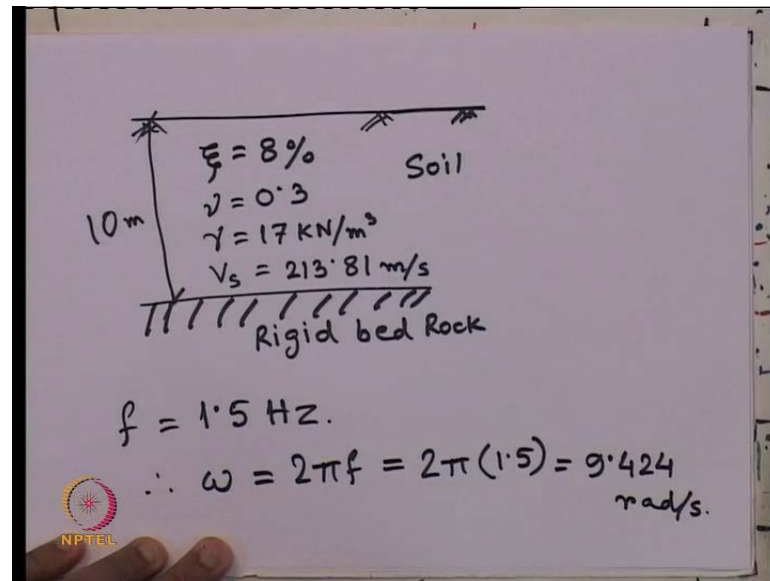 ξ = 8%
Soil
10m
ν = 0.3
γ = 17 KN/m³
Vs = 213.81 m/s
Rigid bed Rock
f = 1.5 Hz.
∴ ω = 2πf = 2π(1.5) = 9.424
rad/s.
NPTEL